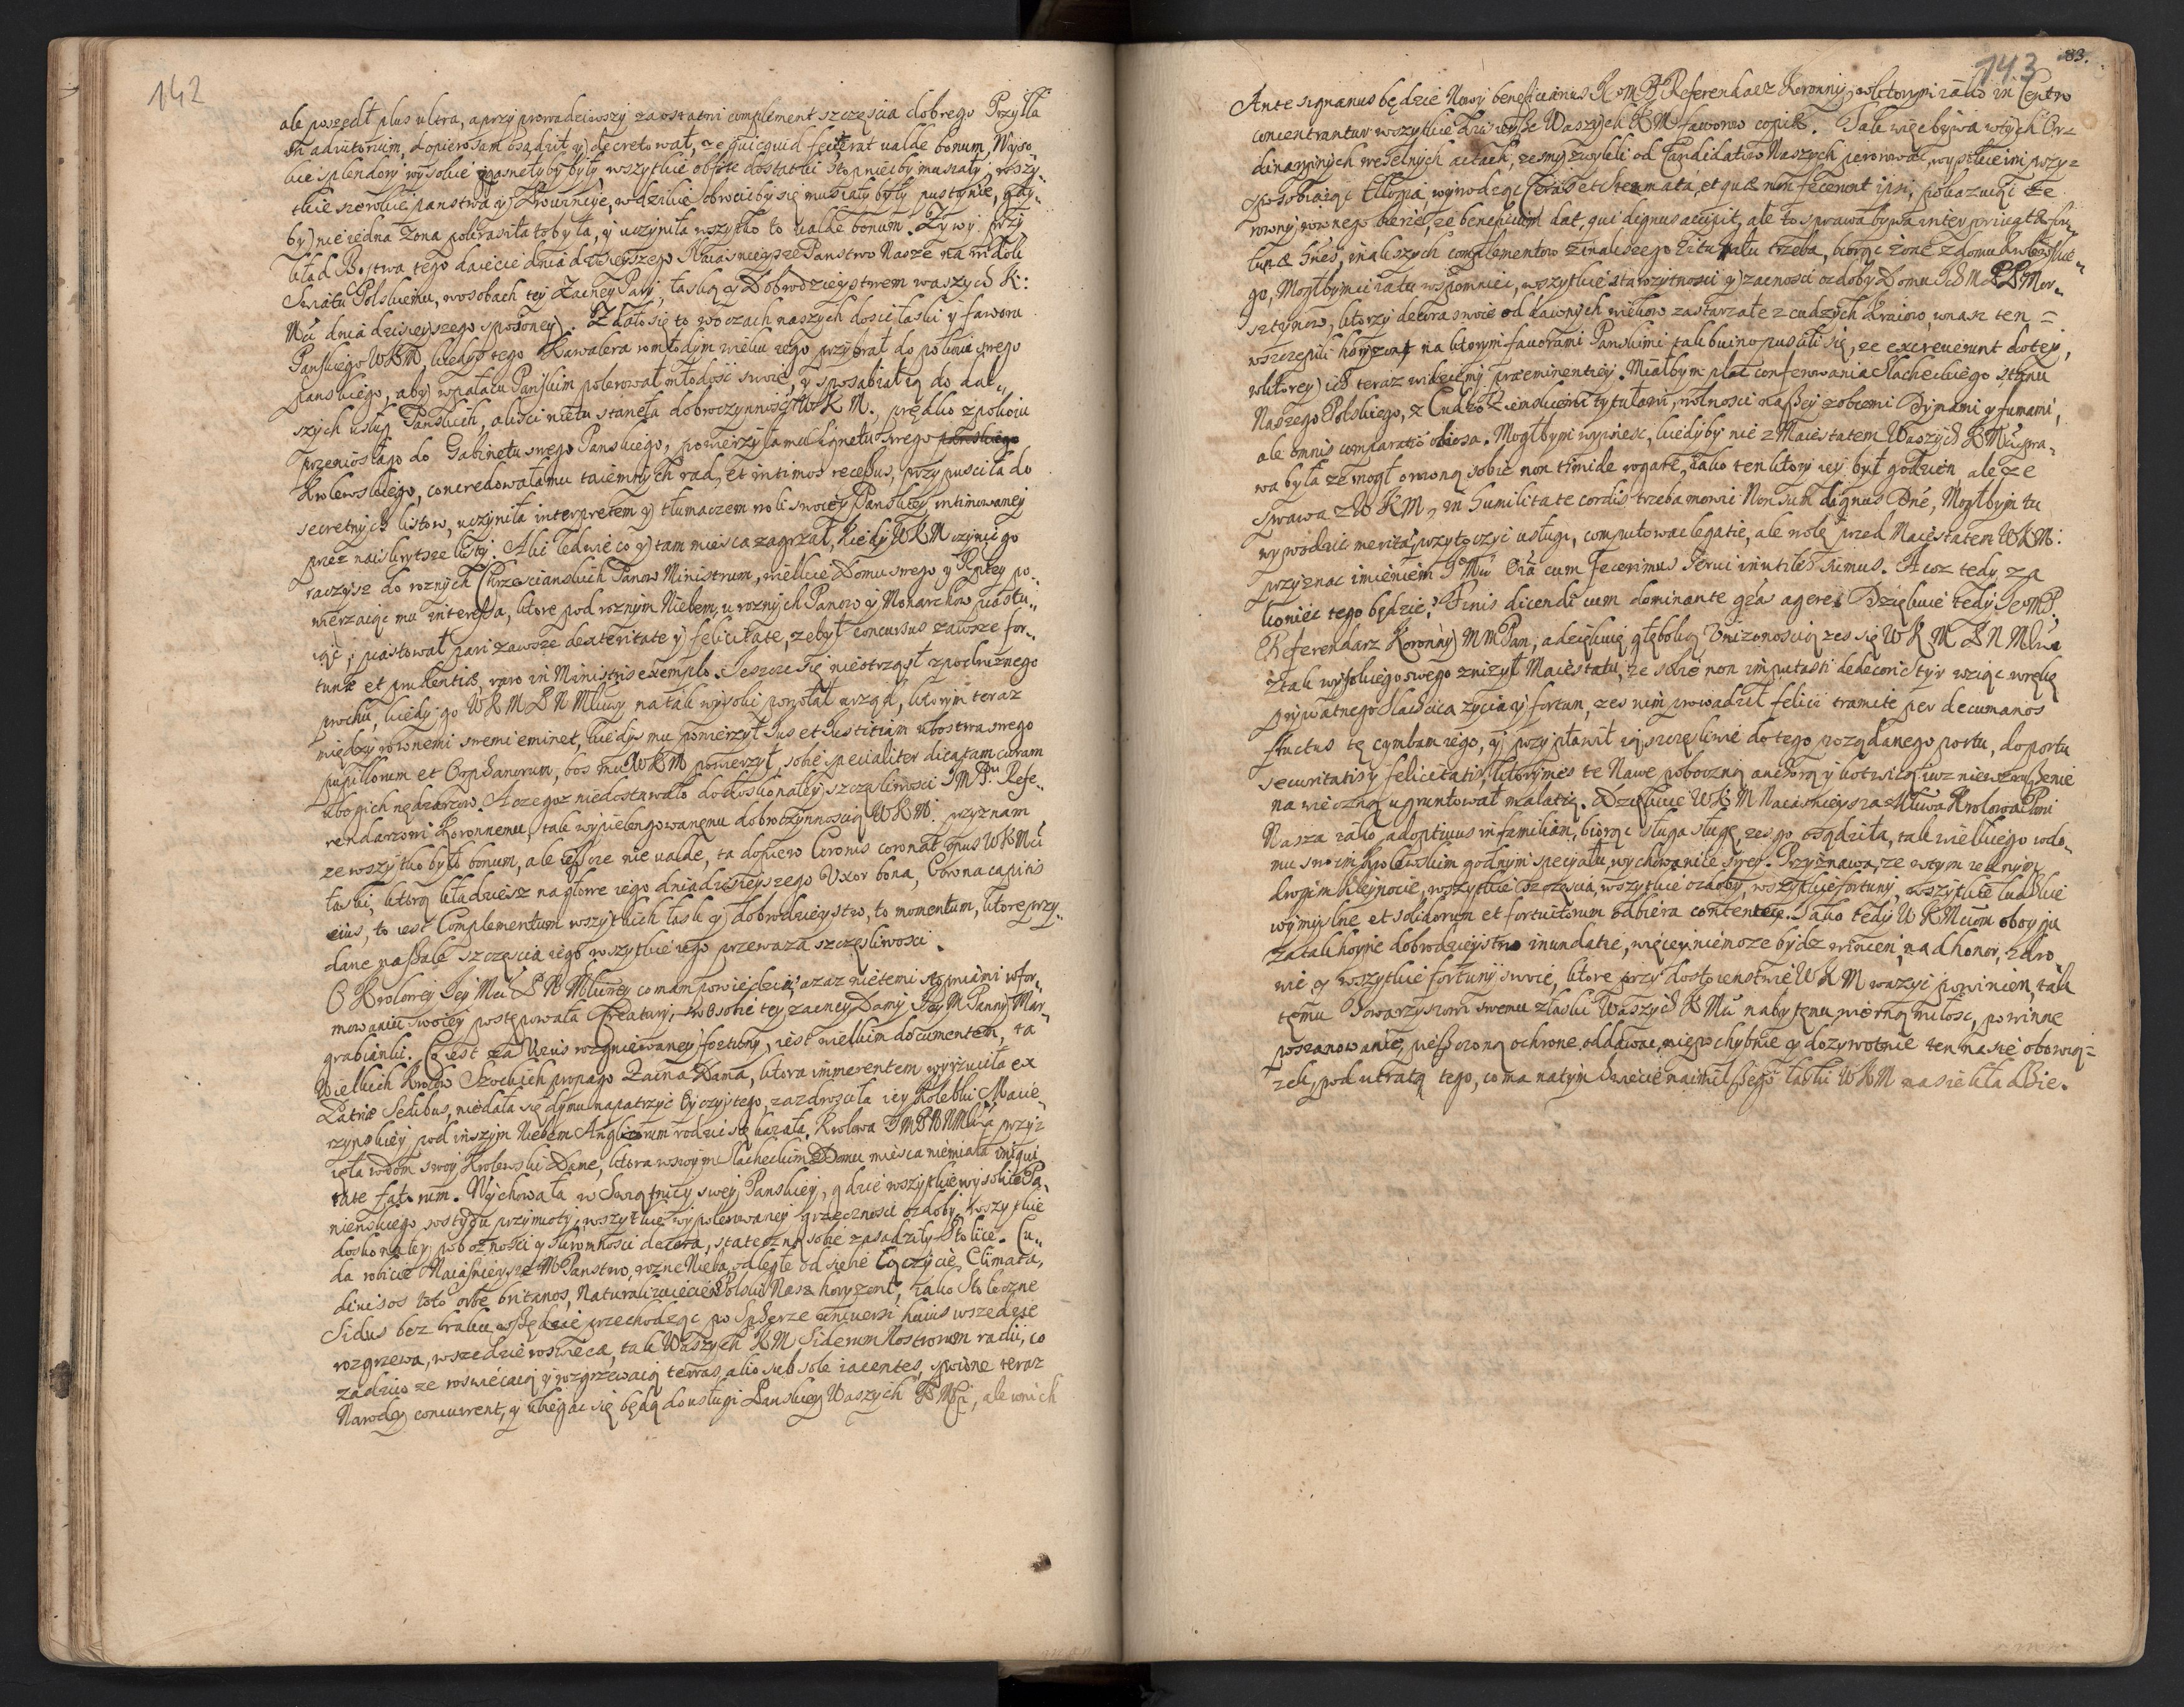 142
ale poszedł plus ultra, a przy prowadciwszy za ostatni complement szczęścia dobrego Przyiła
in adiutorium, dopiero sam osądził y decretował, ze quicquid fecerat valde bonum, Wyso
kie splendory wysokie zgasnęłyby były, wszytkie obfite dostatki stopnieć by musiały, wszy„
tkie szerokie panstwa y Prouincye, w dzikie obrocicby się musiały były pustynie, gdy„
by nie iedna Zona pokrasiła to była, y uczyniła wszytko to valde bonum. Zywy przy
kład Bostwa tego daiecie dnia dzisieyszego Naiasnieysze Panstwo Nasze na widok
Swiatu Polskiemu, w osobach tey Zacney Pary, łaską y Dobrodzieystwem waszych K:
Mci dnia dzisieyszego spoioney. Zdało się to w oczach naszych dosic łaski y faworu
Panskiego WKM, kiedys tego Kawalera w młodym wieku iego przybrał do pokoiu swego
panskiego, aby w pałacu Panskim polerował młodość swoię, y sposabiał ią do dal„
szych usług Panskich, aliści nie tu stanęła dobroczynność WKM, prędko z pokoiu
przeniosła go do Gabinetu swego Panskiego, powierzyła mu signetu swego panskiego
Krolewskiego, concredowała mu taiemnych rad, et intimos recessus, przypusciła do
secretnych listow, uczyniła interpretem y tłumaczem woli swoiey Panskiey intimowaney
przez naiskrytsze listy. Alić ledwie co y tam mieisca zagrzał, kiedy WKM czynić go
raczysz do roznych Chrzescianskich Panow Ministrum, wielkie Domu swego y Rptey po„
wierzaiąc mu interessa, ktore pod roznym Niebem, u roznych Panow y Monarchow piastu„
iąc, piastował pari zawsze dexteritate y felicitate, ze był concursus zawsze for„
tunæ et prudentiæ, raro in Ministris exemplo. Ieszcze się nie otrząsł z podroznego
prochu, kiedy go WKM PN Młciwy na tak wysoki powołał urząd, ktorym teraz
między rownemi swemi eminet, kiedys mu powierzył Ius et Iustitiam ubostwa swego
pupillorum et Orphanorum, bos mu WKM powierzył, sobie specialiter dicatam curam
ubogich nędzarzow. A czegoz niedostawało do doskonałey szczęśliwosci IMPu Refe„
rendarzowi Koronnemu, tak wypielengowanemu dobroczynnoscią WKM: przyznam
ze wszytko było bonum, ale ieszcze nie valde, ta dopiero Coronis coronat opus WKMci
łaski, ktorą kładziesz na głowe iego dnia dzisieyszego Uxor bona, Corona capitis
eius, to iest Complementum wszytkich łask y dobrodzieystw, to momentum, ktore przy„
dane na szale szczęścia iego wszytkie iego przewaza szczęśliwosci.
O Krolowey Iey Mci PN Młciwey co mam powiedziec? azaz nie temi stopniami w for„
mowaniu swoiey postępowała Creatury, w osobie tey zacney Damy Iey M Panny Mar„
grabianki. Co iest za Uzus rozgniewaney fortuny, iest wielkim documentem, ta
Wielkich Krolow Szockich propago Zacna Dama, ktora immerentem wyrzuciła ex
Patriæ Sedibus, nie dała się dymu napatrzyć Oyczystego, zazdrosciła iey Kolebki Macie„
rzynskiey, pod inszym Niebem Anglicorum rodzic się kazała. Krolowa IMPNMłcia przy=
ięła w dom swoy Krolewski Dame, ktora w swoym Slacheckim Domu mieisca niemiała iniqui
tate fatorum. Wychowała w Swiątnicy swey Panskiey, gdzie wszytkie wysokie Pa„
nienskiego wstydu przymioty, wszytkie wypolerowaney grzecznosci ozdoby, wszytkie
doskonałey poboznosci y skromnosci decora, stateczną sobie zasadziły Stolice. Cu„
da robicie Naiasnieysze M Panstwo, rozne Nieba, odległe od siebie łączycie Climata,
diuisos toto orbe britanos, Naturalizuiecie w Polski Nasz horyzont, iako Słoneczne
Sidus bez braku wszędzie przechodząc po Spherze uniuersi huius wszedzie
rozgrzewa, wszedzie roswieca, tak Waszych KM Siderum Nostrorum radii, co
zadziw ze roswiecaią y rozgrzewaią terras alio sub sole iacentes, pewne teraz
Narody concurrent, y ubiegac się będą do usługi Panskiey Waszych KMci, ale w nich
143 83.
Ante signanus będzie Nowy beneficianus IoMP Referendarz Koronny, w ktorym iako in Centro
concentrantur wszytkie dziwusze Waszych KM faworow copiæ. Tak więc bywa w tych Or=
dinaryinych weselnych actach, zesmy zwykli od Candidatow Naszych perorować, wysokie im przy=
sposobiaiąc Ellogia, wywodząc Ceras et Stemmata, et quæ non fecerunt ipsi, pokazuiąc ze
rowny rownego bierze, ze beneficium dat, qui dignus accipit, ale to sprawa bywa inter priuatæ for„
tunæ Gnes, inakszych complementow z inakszego Tytułu trzeba, biorąc zone z domu Krolewskie„
go, Mogłbym ci w iadu wspomniec, wszytkie starozytnosci y zacnosci ozdoby Domu IchM PP Mor„
sztynow, ktorzy decora swoie od dawnych wiekow zastarzałe z cudzych kraiow, w nasz ten =
wszczepili horyzont na ktorym fauorami Panskimi tak buino puscili się, ze excreuerunt do tey,
w ktorey ich teraz widziemy præeminentiey. Miałbym plac conferowania Slacheckiego Stanu
Naszego Polskiego, z Cudzoziemskiemi tytułami, wolnosci naszey z obcemi Dymami y fumami,
ale omnis comparatio odiosa. Mogłbym wyniesc, kiedyby nie z Maiestatem Waszych KMci spra„
wa była ze mogł o wonną sobie non timide rogare, iako ten ktory iey był godzien ale ze
sprawa z WKM, in humilitate cordis trzeba mowic Non sum dignus Dne, Mogłbym tu
wywodzic merita, przytoczyć usługi, computowac legatie, ale wolę przed Maiestatem WKM:
przyznac imieniem I Mci Oia cum fecerimus Serui inutiles sumus. A coz tedy za
koniec tego będzie? Finis dicendi cum dominante gra agere. Dziękuie tedy IeMP.
Referendarz Koronny MMPan, a dziękuię głęboką Unizonoscią zes się WKM PN Młci
z tak wysokiego swego znizył Maiestatu, ze sobie non imputasti dedecori Styr wziąc w rękę
prywatnego Slachcica zycia y fortun, zes nim prowadził felici tramite per decumanos
fluctus tę cymbam iego, y przypławił ią szczęsliwie do tego poządanego portu, do portu
securitatis y felicitatis, ktorymes te Nawe poboczną anchorą y kotwicą iuz niewzruszenie
na wieczną ugruntował malatią. Dziękuie WKM Naiasnieysza Młciwa Krolowa Pani
Nasza iako adoptiuus in familiam, biorąc sługa sługę, zes go osądziła, tak wielkiego w do„
mu swoim Krolewskim godnym speciału, wychowanice swey. Przyznawa, ze w tym iednym
drogim kleynocie, wszytkie szczęscia, wszytkie ozdoby, wszytkie fortuny, wszytkie ludzkie
wymyslne et solidorum et fortuitorum odbiera contentece. Iako tedy WKMciom oboyga
za tak hoyne dobrodzieystw inundatie, więcey niemoze bydz winien, nad honor, zdro„
wie y wszytkie fortuny swoie, ktore przy dostoienstwie WKM wazyc powinien, tak
temu Towarzyszowi swemu z łaski Waszych KMci nabytemu wierną miłosc, powinne
poszanowanie, pieszczoną ochrone oddawac, niepochybnie y dozywotnie ten na się obowią=
zek, pod utratą tego, co ma na tym swiecie naimilszego łaski WKM na sie kładzie.